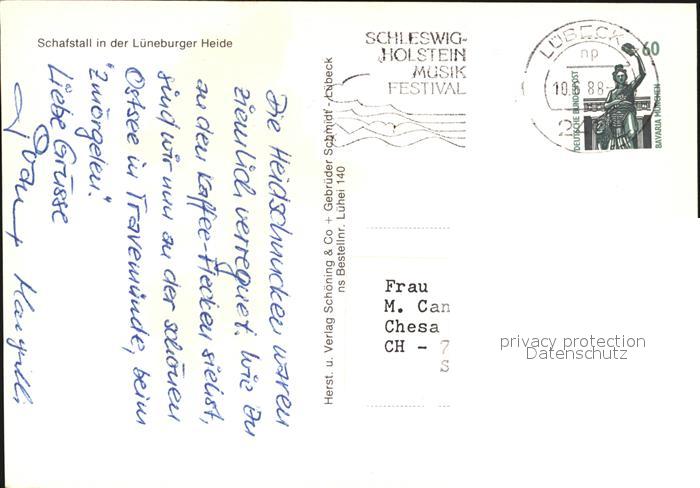 Schafstall in der Lüneburger Heide
Die Heidschnucken waren
ziemlich verregnet. Wie Du
an den Kaffee-Flecken siehst,
sind wir nun an der schönen
Ostsee in Travemünde, beim
"zmorgelen".
Liebe Grüsse
Herst. u. Verlag Schöning & Co + Gebrüder Schmidt - Lübeck
ns Bestellnr. Lühei 140
SCHLESWIG-
HOLSTEIN
MUSIK
FESTIVAL
LÜBECK
np
88-
2
60
DEUTSCHE BUNDESPOST
BAVARIA MÜNCHEN
Frau
M. Can
Chesa
CH - 7
S
privacy protection
Datenschutz